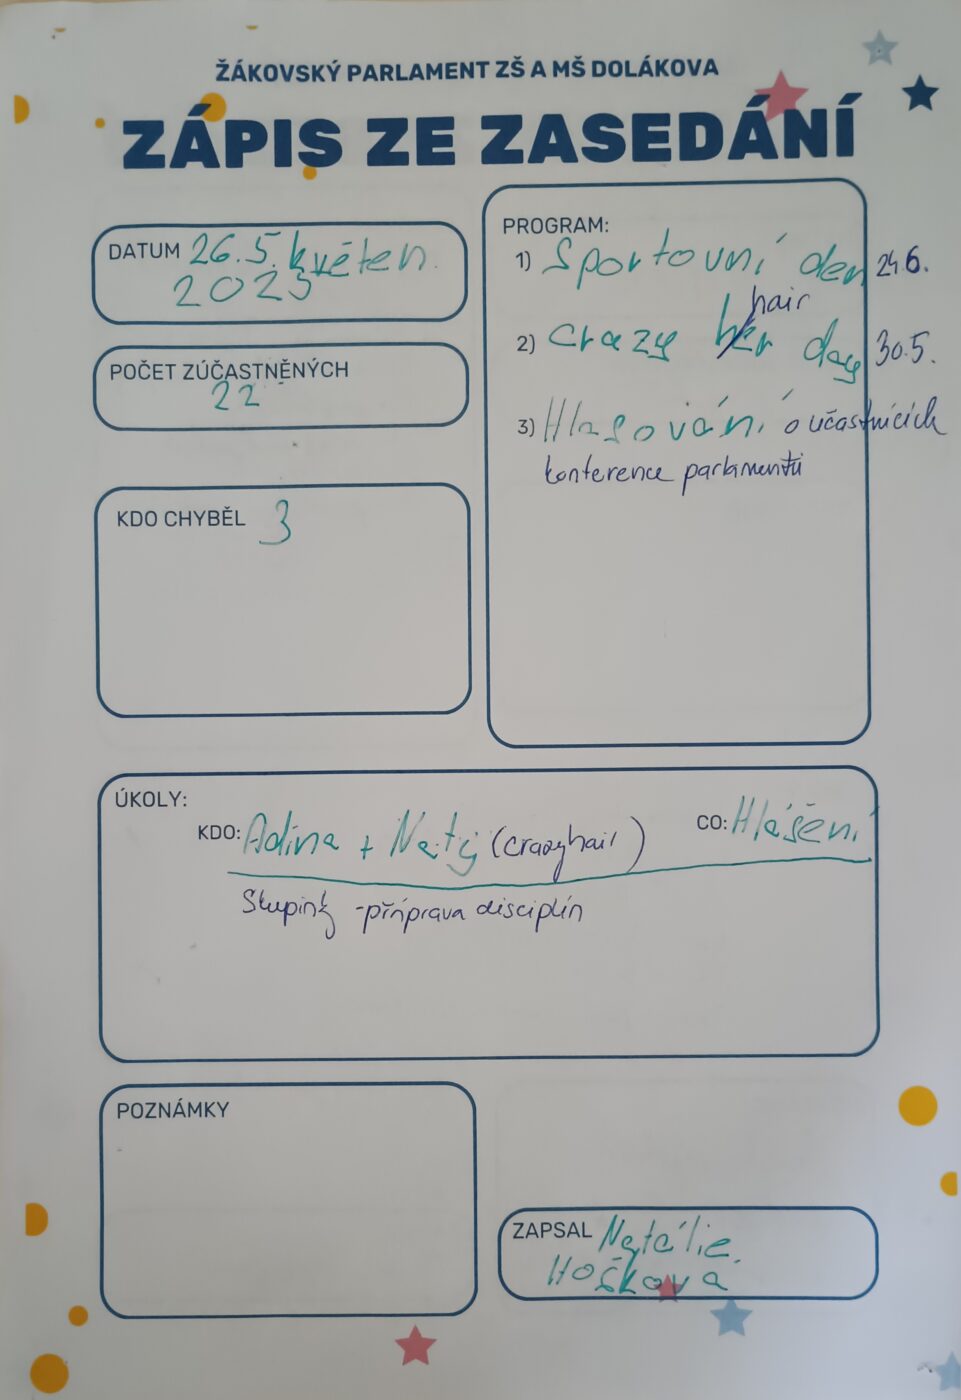 ŽÁKOVSKÝ PARLAMENT ZŠ A MŠ DOLÁKOVA
ZÁPIS ZE ZASEDÁNÍ
DATUM 26.5. květen
2025
POČET ZÚČASTNĚNÝCH
22
KDO CHYBĚL 3
PROGRAM:
1) Sportovní den 24.6.
hair
2) Crazy day 30.5.
3) Hlasování o účastnících
konference parlamentů
ÚKOLY:
KDO: Adina + Naty (crazyhair) CO: Hlášení
Skupinky - příprava disciplín
POZNÁMKY
ZAPSAL Natálie
Hošková